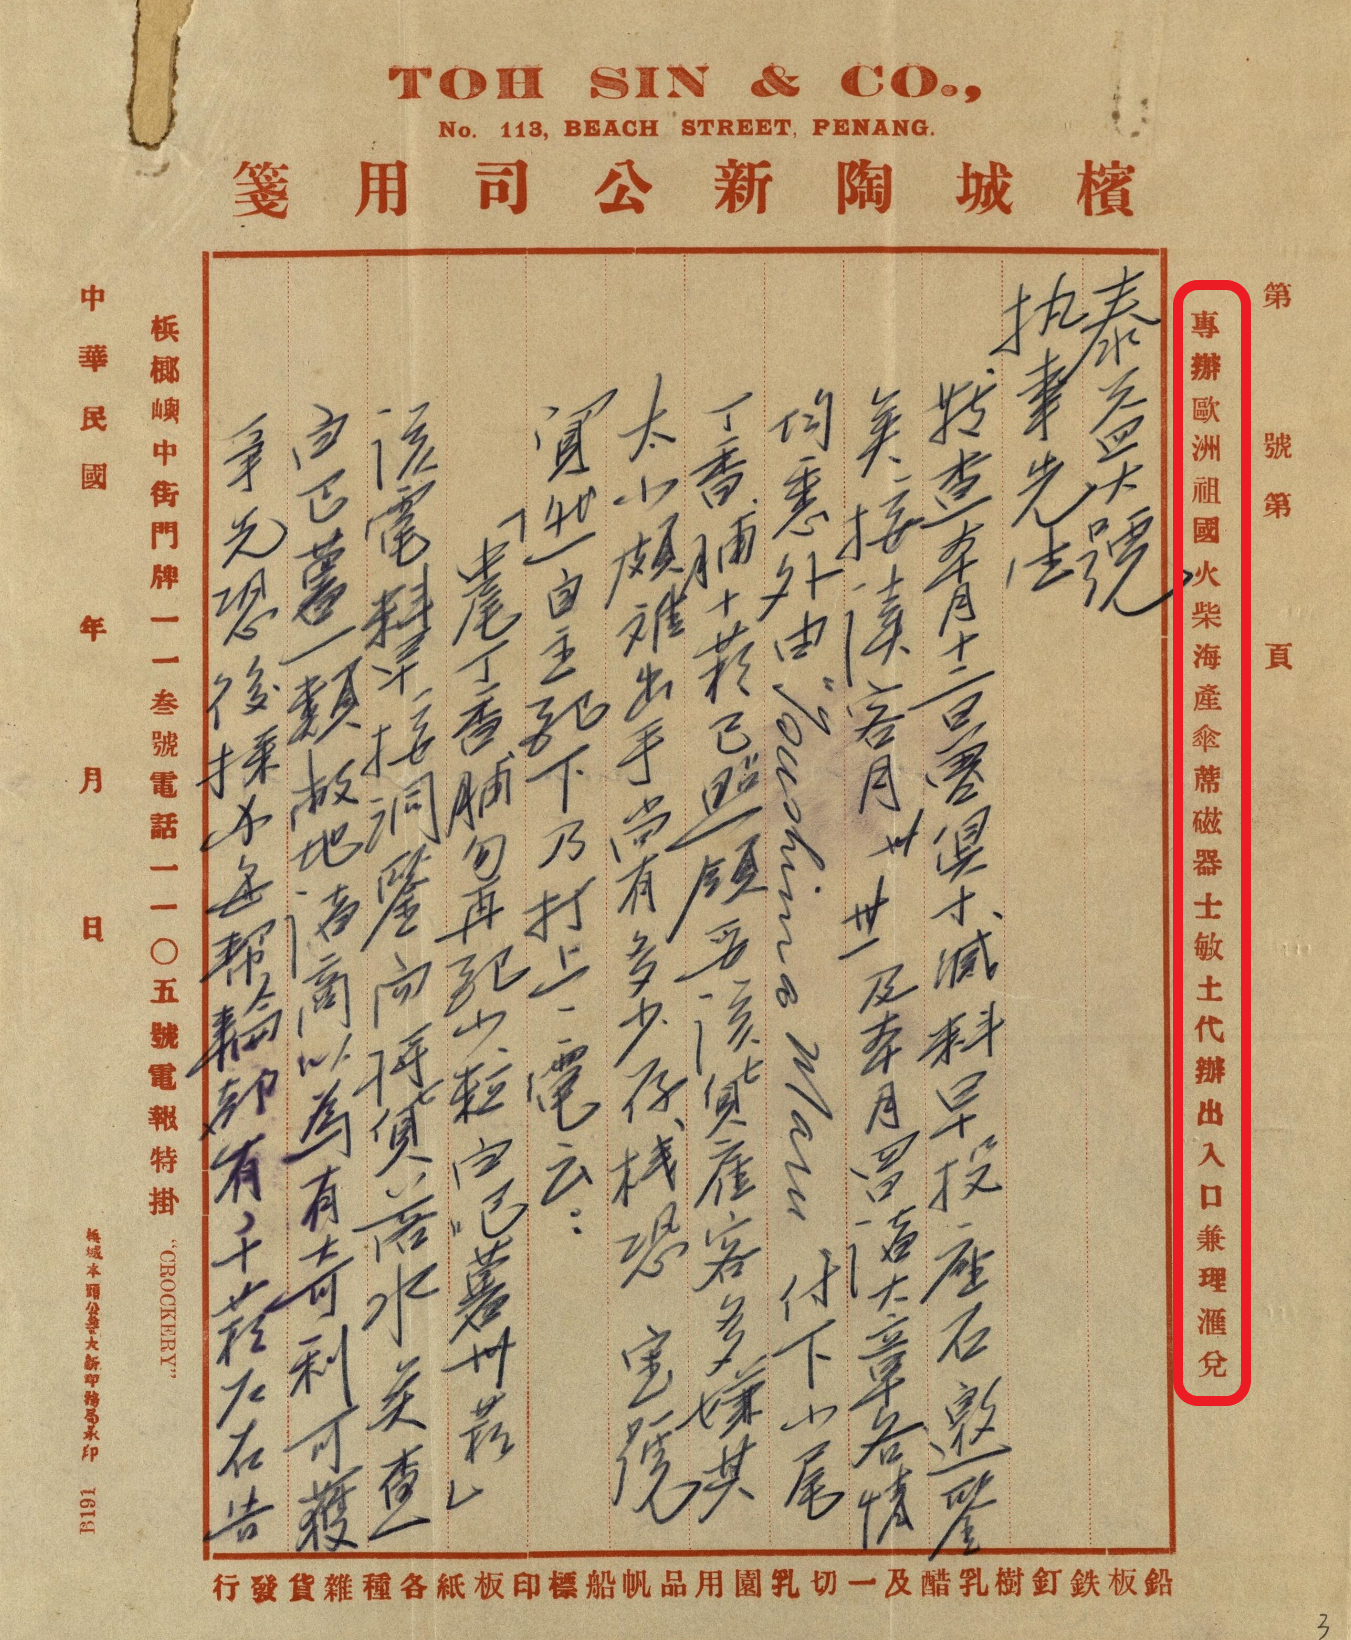 TOH SIN & CO.,
No. 113, BEACH STREET, PENANG.
檳城陶新公司用箋
第 號第 頁
專辦歐洲祖國火柴海產傘蓆磁器士敏土代辦出入口兼理滙兌
泰益大號
执事先生
敬查本月十二日寄俱才减料早投座右邀鑒
矣接讀客月卅卅一及本月四諸大章各情
均悉外由“Toushima Maru 付下小尾
丁香脯十菸已照領妥該貨產客多嫌其
太小頗难出手尚有多少存栈恐 宝號
買
自主配下乃打上一電云：
「中尾丁香脯勿再配小粒
薯卅菸」
該電料早接洞鑒向得貨落水矣查
薯一類敝地諸商以為有奇利可獲
争先恐後採办每帮輪都有
千菸左右告
鉛板鉄釘樹乳醋及一切乳園用品帆船標印板紙各種雜貨發行
梹榔嶼中街門牌一一叁號電話一一〇五號電報特掛“CROCKERY”
中華民國 年 月 日
檳城本頭公巷大新印務局承印 B191
3